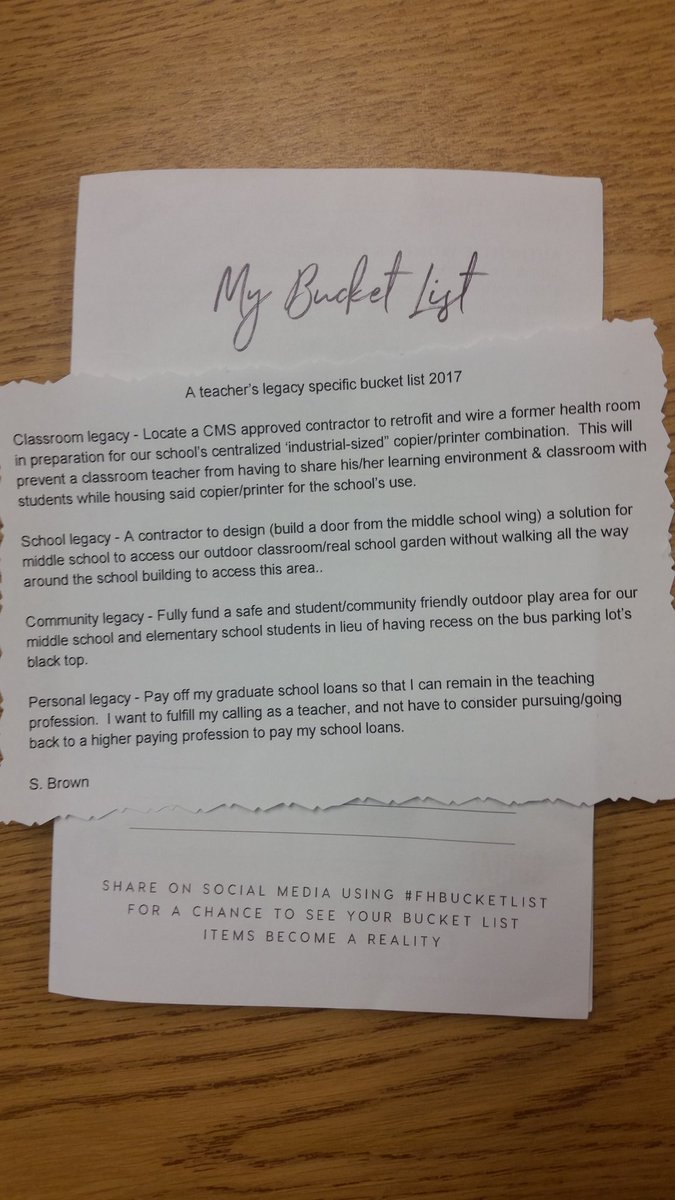 My Bucket List
A teacher's legacy specific bucket list 2017
Classroom legacy - Locate a CMS approved contractor to retrofit and wire a former health room
in preparation for our school's centralized 'industrial-sized" copier/printer combination.  This will
prevent a classroom teacher from having to share his/her learning environment & classroom with
students while housing said copier/printer for the school's use.
School legacy - A contractor to design (build a door from the middle school wing) a solution for
middle school to access our outdoor classroom/real school garden without walking all the way
around the school building to access this area..
Community legacy - Fully fund a safe and student/community friendly outdoor play area for our
middle school and elementary school students in lieu of having recess on the bus parking lot's
black top.
Personal legacy - Pay off my graduate school loans so that I can remain in the teaching
profession.  I want to fulfill my calling as a teacher, and not have to consider pursuing/going
back to a higher paying profession to pay my school loans.
S. Brown
SHARE ON SOCIAL MEDIA USING #FHBUCKETLIST
FOR A CHANCE TO SEE YOUR BUCKET LIST
ITEMS BECOME A REALITY